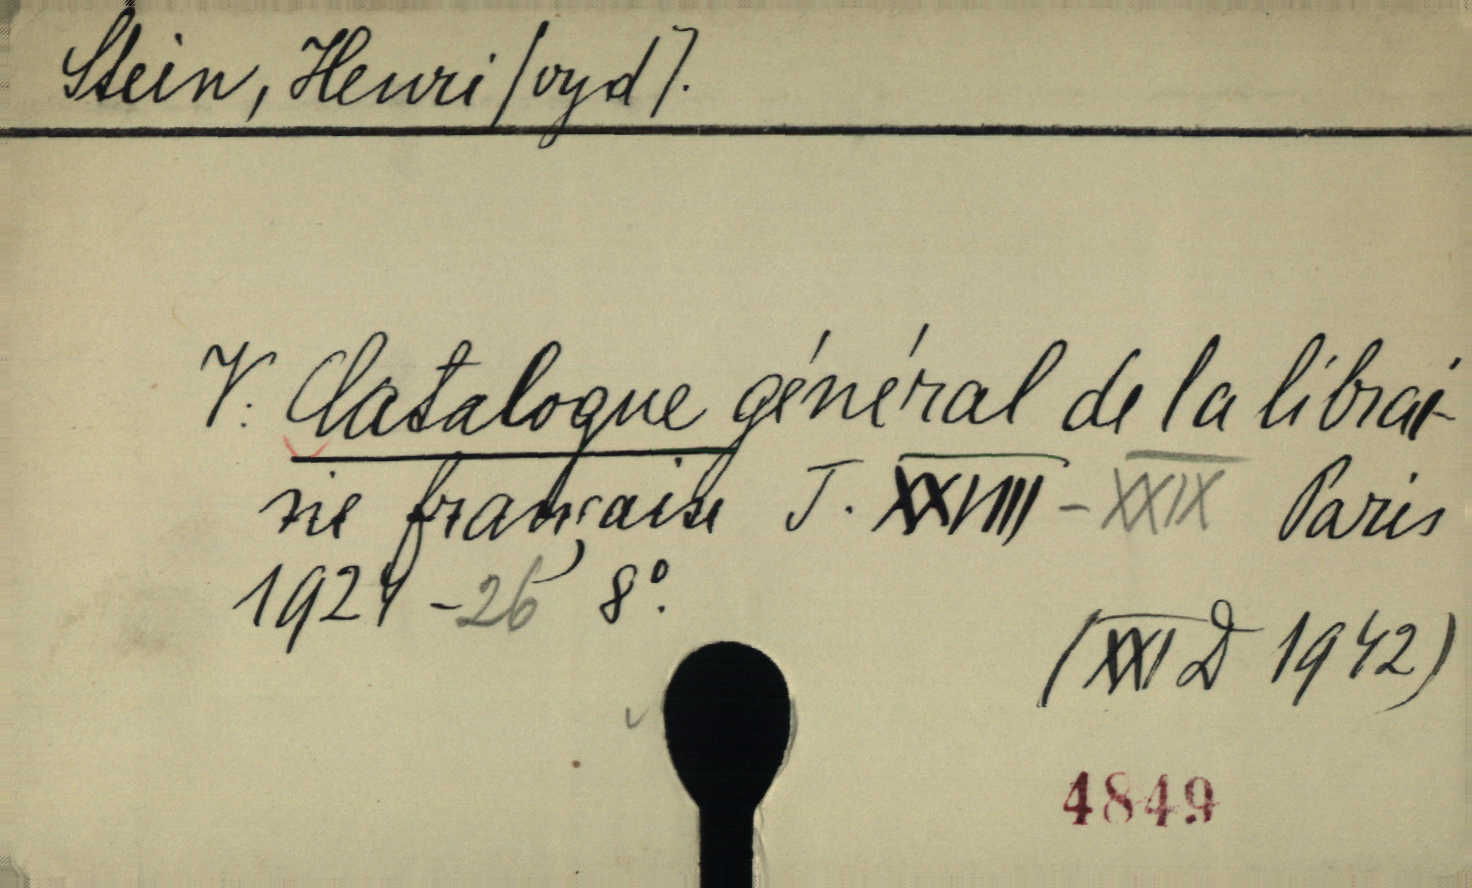 Stein, Henri [vyd].
V: Catalogue général de la librai-
rie française T. XXVIII - XXIX Paris
1924 - 26 8°.
(XXI D 1942)
4849